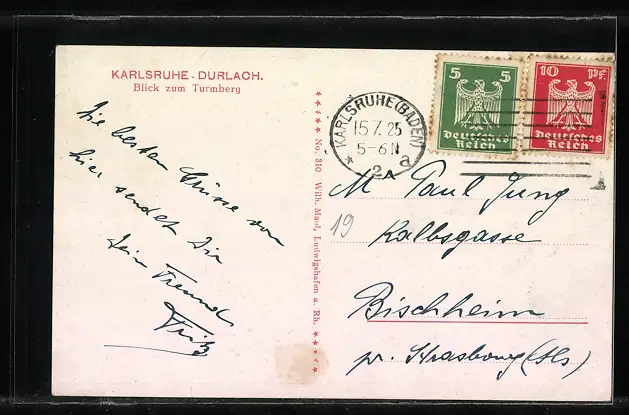 KARLSRUHE - DURLACH.
Blick zum Turmberg
Die besten Grüsse von
hier sendet Dir
Dein Freund
Fritz
No. 310 Wilh. Maul, Ludwigshafen a. Rh.
KARLSRUHE (BADEN)
15.7.25
5-6 N
* 2 a
5 5
Deutsches
Reich
10 Pf.
Deutsches
Reich
Mr Paul Jung
19 Kalbsgasse
Bischheim
pr. Strasbourg (Als)